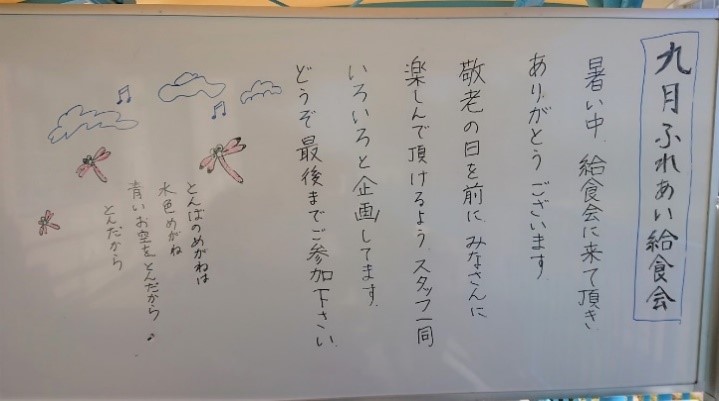 九月ふれあい給食会
暑い中、給食会に来て頂き
ありがとうございます。
敬老の日を前に、みなさんに
楽しんで頂けるよう、スタッフ一同
いろいろと企画してます。
どうぞ最後までご参加下さい。
とんぼのめがねは
水色めがね
青いお空をとんだから
とんだから